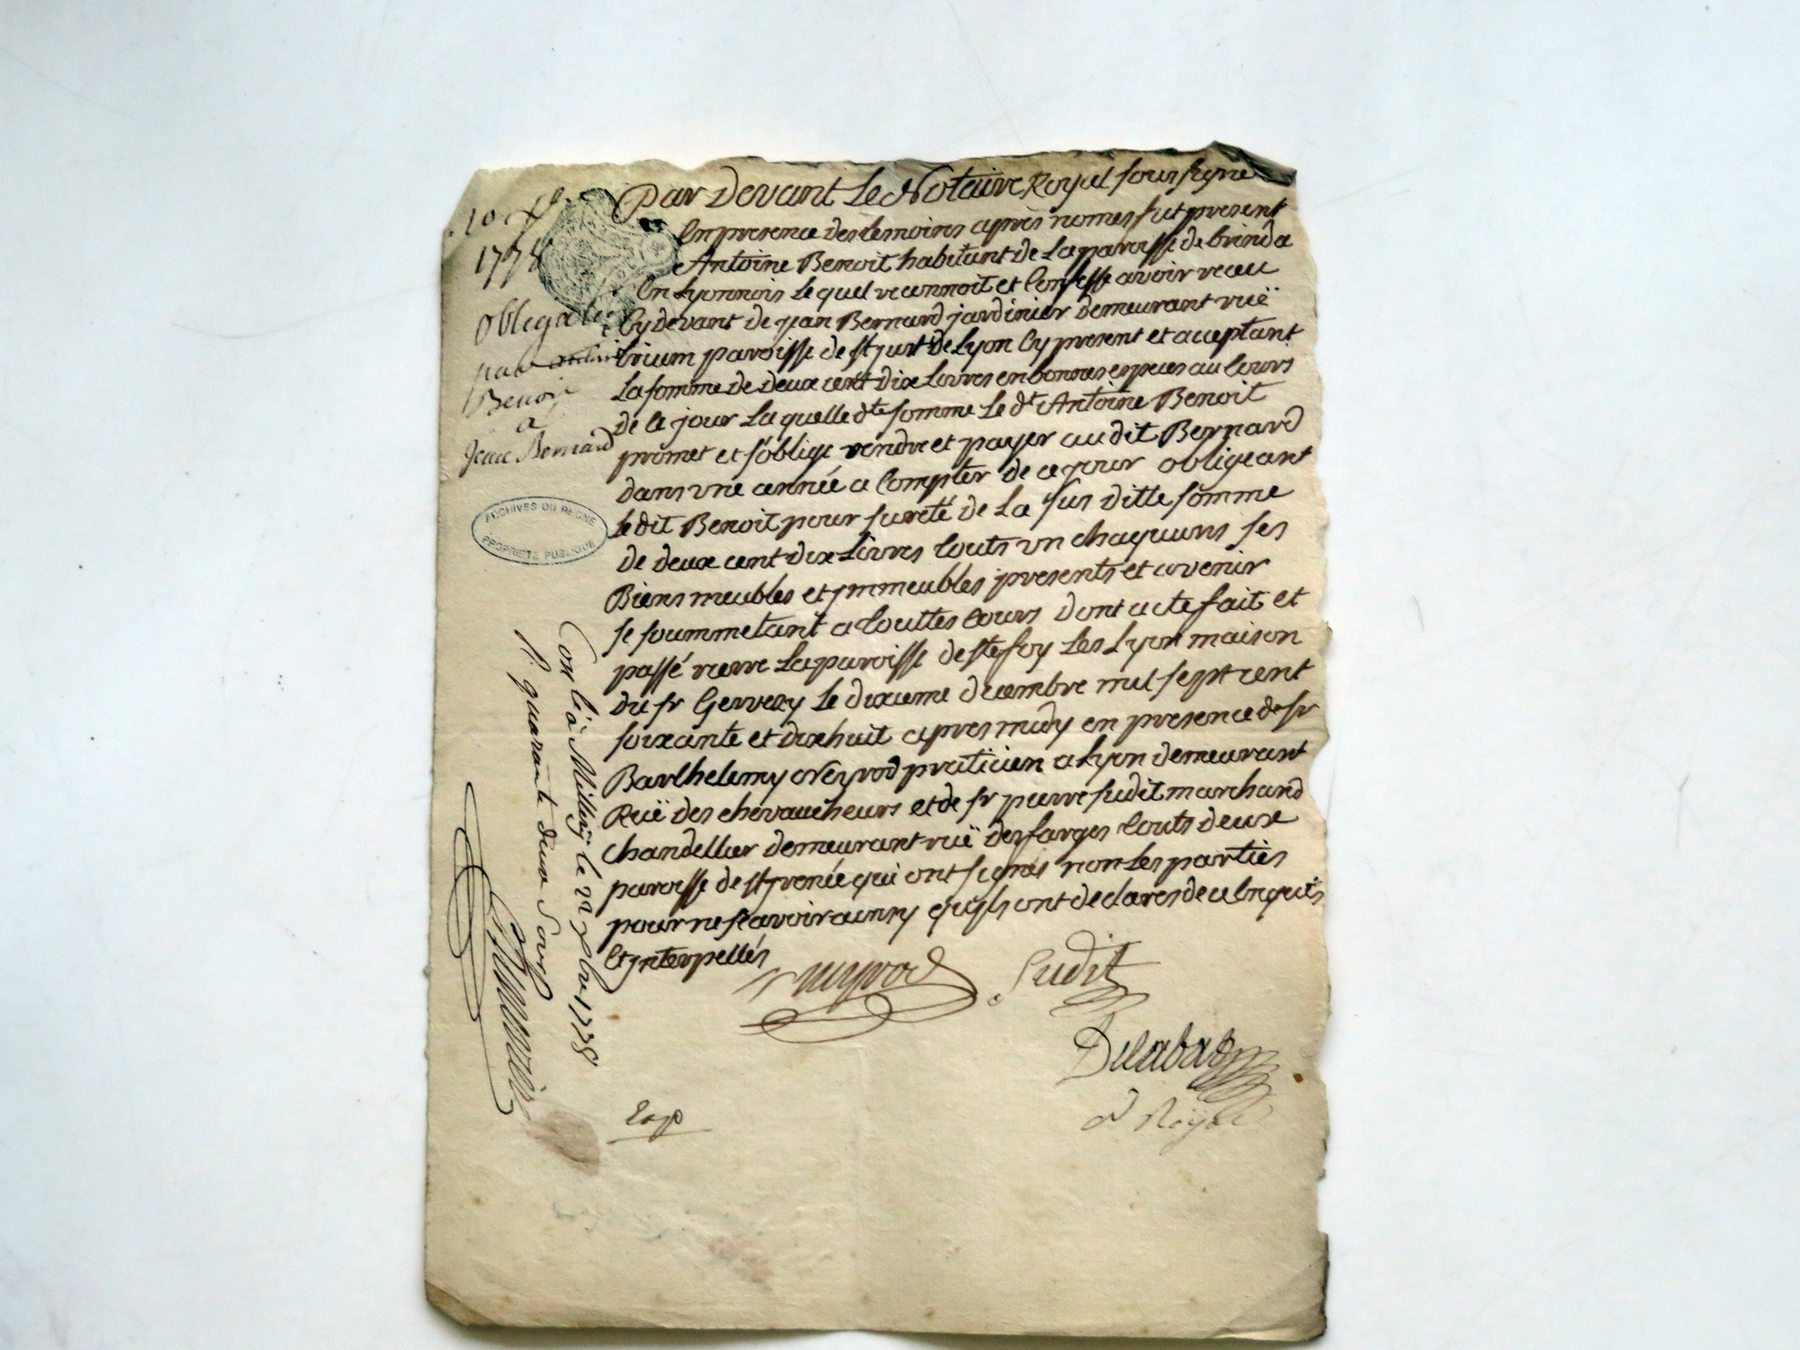 10 xbre
1778
Obligation
par
Benoit
a
Jean Bernard
ARCHIVES DU REGNE
PROPRIETE PUBLIQUE
Par Devant Le Notaire Royal soussigné
En presence des temoins apres nomes fut present
Antoine Benoit habitant de La paroisse de brinda
En Lyonnois Lequel reconnoit et Confesse avoir recu
Cy devant de jean Bernard jardinier demeurant ruë
trium paroisse de st just de Lyon Cy present et acceptant
La somme de deux cent dix Livres en bonnes especes au Cours
de Ce jour La quelle dte somme Le dt Antoine Benoit
promet et s'oblige rendre et payer au dit Bernard
dans une année a Compter de ce jour obligeant
Le dit Benoit pour sureté de La sus ditte somme
de deux cent dix Livres touts un chaquuns ses
Biens meubles et jmmeubles presents et avenir
se soummetant a touttes Cours dont acte fait et
passé rierre La paroisse de ste foy Les Lyon maison
du sr Gervezy Le dixieme decembre mil sept cent
soixante et dixhuit apres midy en presence de sr
Barthelemy Neyrod praticien a Lyon demeurant
Ruë des chevaucheurs et de sr pierre sudit marchand
Chandellier demeurant ruë des farges touts deux
paroisse de st jrenée qui ont signés non Les parties
pour ne sçavoir ainsy qu'jls ont declarés de ce Enquis
Et jnterpellés
Neyrod
Sudit
Delabat
N Royal
Exp
Con lé à Millery le 22 xbre 1778
R. quarante deux sous